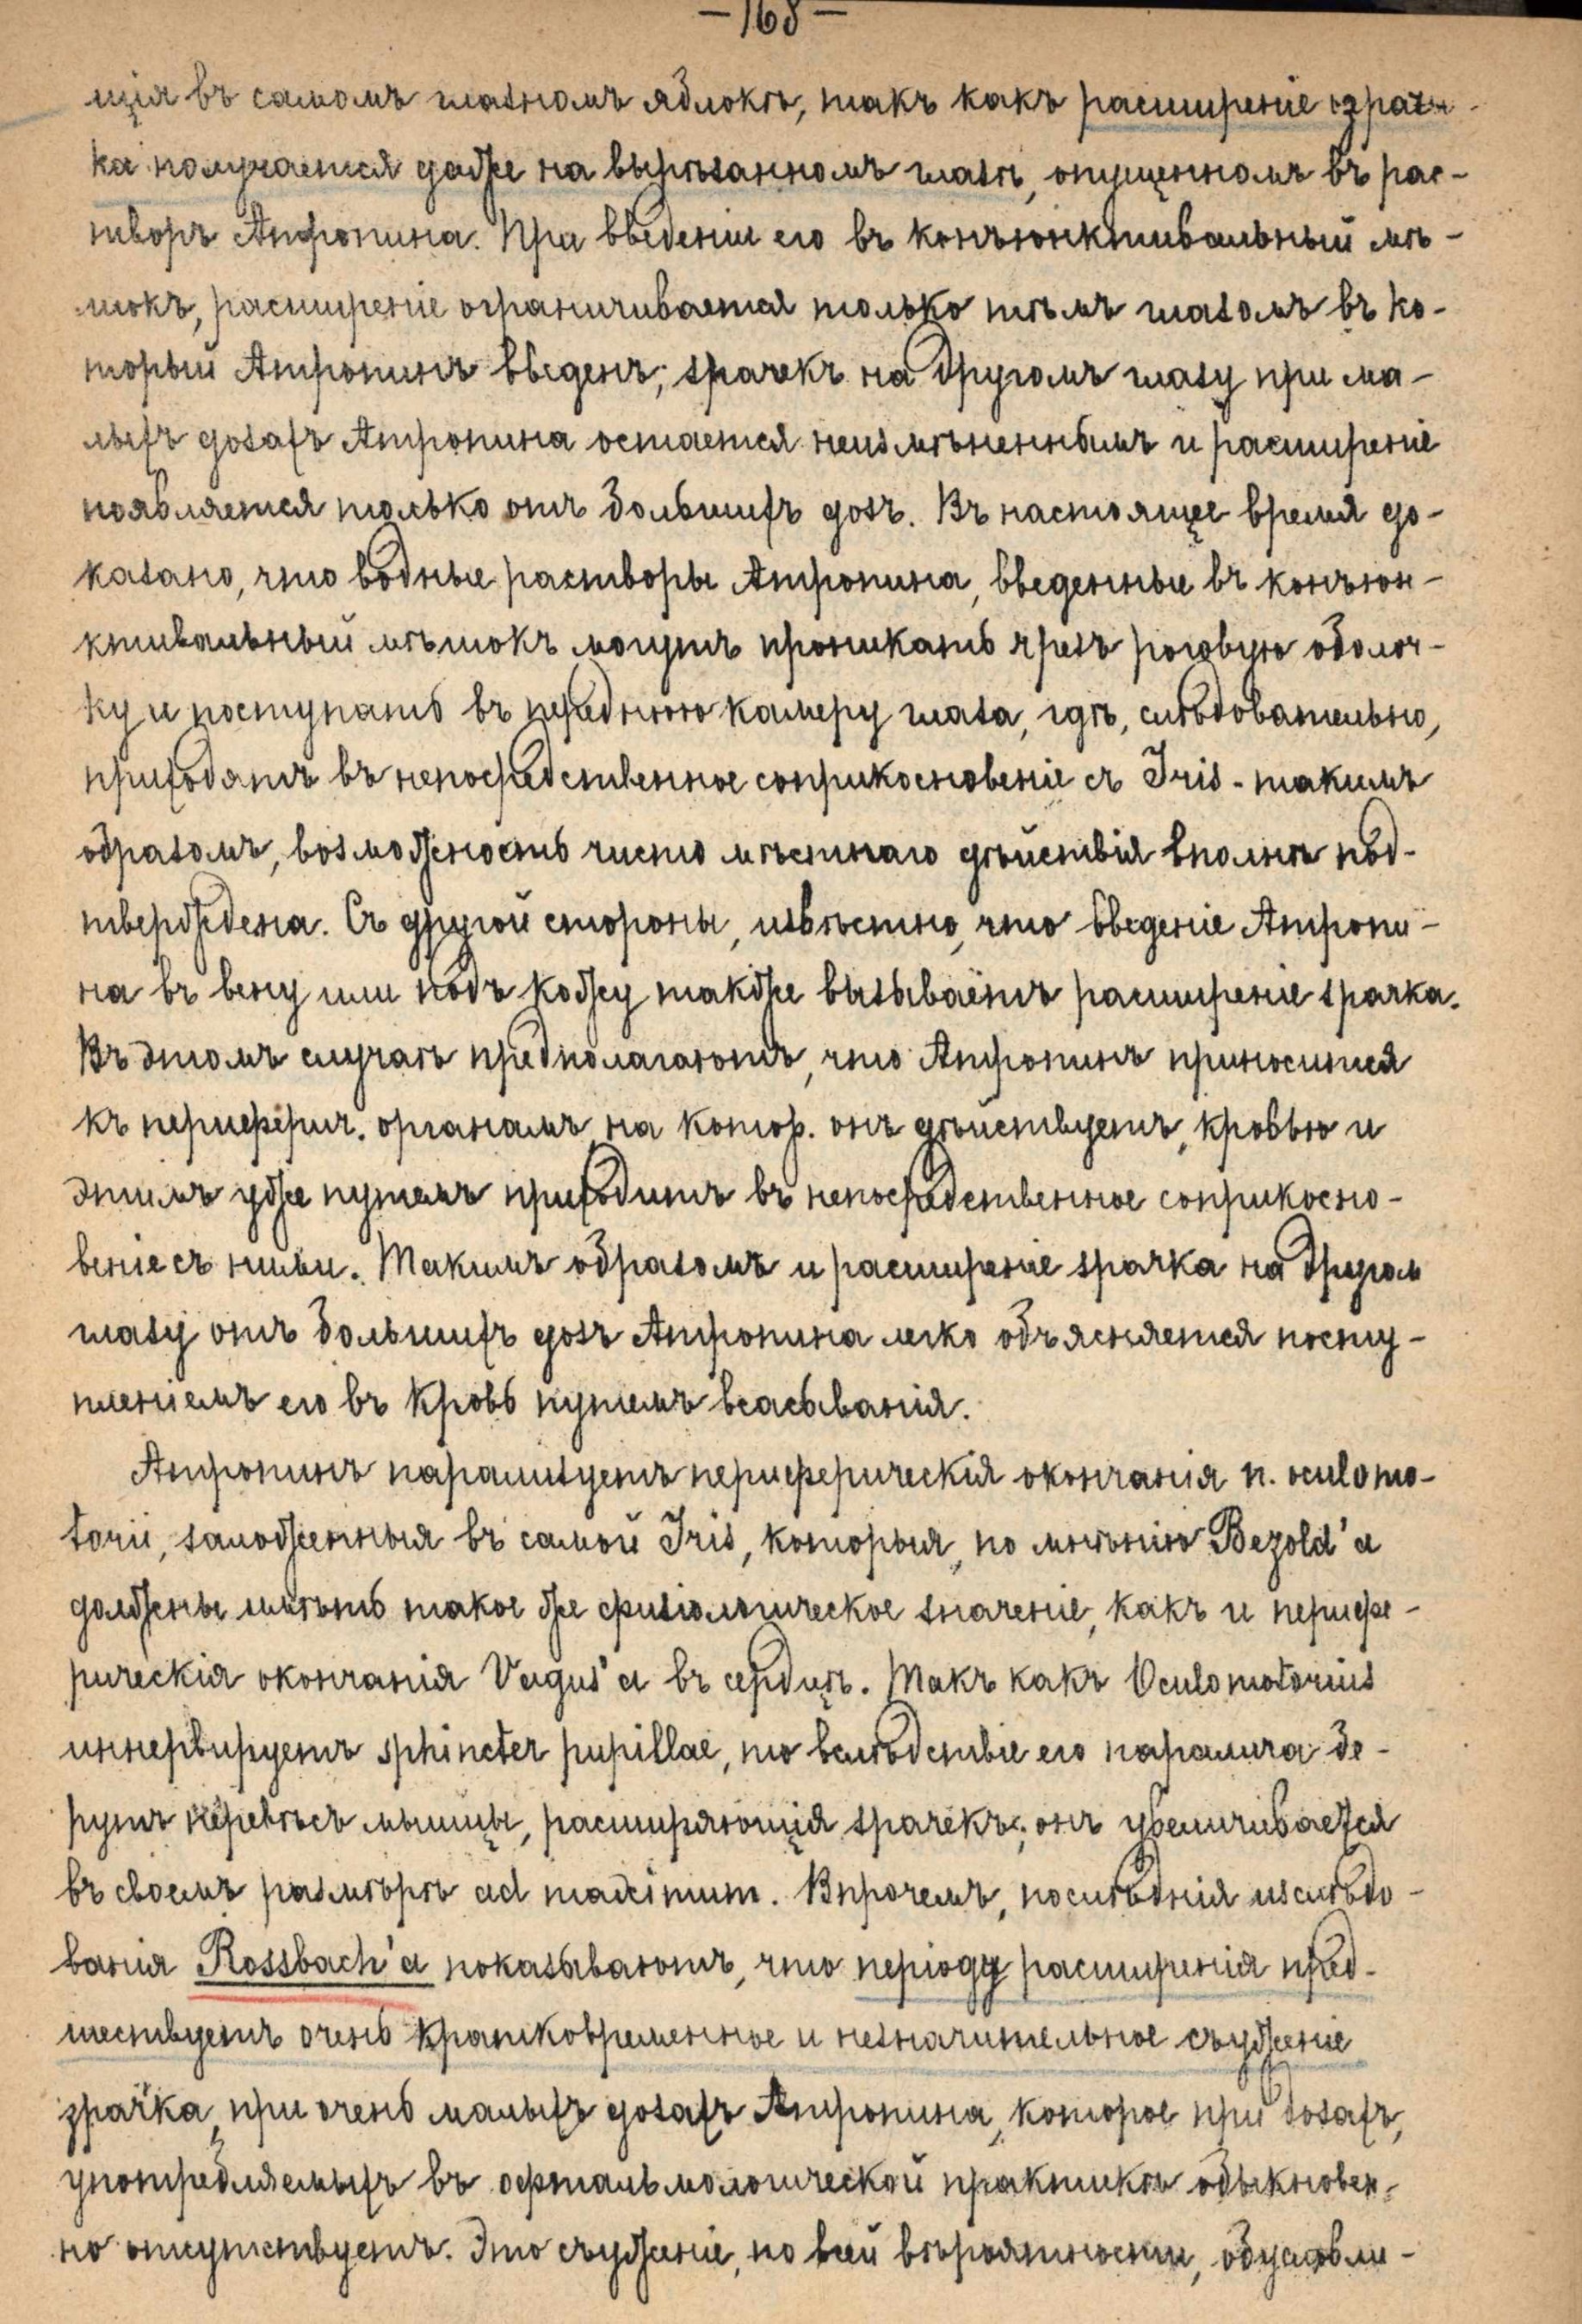 —168—
щія въ самомъ глазномъ яблокѣ, такъ какъ расширеніе зрач-
ка получается даже на вырѣзанномъ глазѣ, опущенномъ въ рас-
творъ Атропина. При введеніи его въ конъюнктивальный мѣ-
шокъ, расширеніе ограничивается только тѣмъ глазомъ въ ко-
торый Атропинъ введенъ; зрачекъ на другомъ глазу при ма-
лыхъ дозахъ Атропина остается неизмѣненнымъ и расширеніе
появляется только отъ большихъ дозъ. Въ настоящее время до-
казано, что водные растворы Атропина, введенные въ конъюн-
ктивальный мѣшокъ могутъ проникать чрезъ роговую оболоч-
ку и поступать въ переднюю камеру глаза, гдѣ, слѣдовательно,
приходятъ въ непосредственное соприкосновеніе съ Iris - такимъ
образомъ, возможность чисто мѣстнаго дѣйствія вполнѣ под-
тверждена. Съ другой стороны, извѣстно, что введеніе Атропи-
на въ вену или подъ кожу также вызываетъ расширеніе зрачка.
Въ этомъ случаѣ предполагаютъ, что Атропинъ приносится
къ перифѣрич. органамъ, на котор. онъ дѣйствуетъ, кровью и
этимъ уже путемъ приходитъ въ непосредственное соприкосно-
веніе съ ними. Такимъ образомъ и расширеніе зрачка на другом
глазу отъ большихъ дозъ Атропина легко объясняется посту-
пленіемъ его въ кровь путемъ всасыванія.
Атропинъ парализуетъ периферическія окончанія n. oculomo-
torii, заложенныя въ самой Iris, которыя, по мнѣнію Bezold'a
должны имѣть такое же физіологическое значеніе, какъ и перифе-
рическія окончанія Vagus'a въ сердцѣ. Такъ какъ Oculomotorius
иннервируетъ sphincter pupillae, то вслѣдствіе его паралича бе-
рутъ перевѣсъ мышцы, расширяющія зрачекъ; онъ увеличивается
въ своемъ размѣрѣ ad maximum. Впрочемъ, послѣднія изслѣдо-
ванія Rossbach'a показываютъ, что періоду расширенія пред-
шествуетъ очень кратковременное и незначительное съуженіе
зрачка, при очень малыхъ дозахъ Атропина, которое при дозахъ,
употребляемыхъ въ офтальмологической практикѣ обыкновен-
но отсутствуетъ. Это съуженіе, по всей вѣроятности, обусловли-